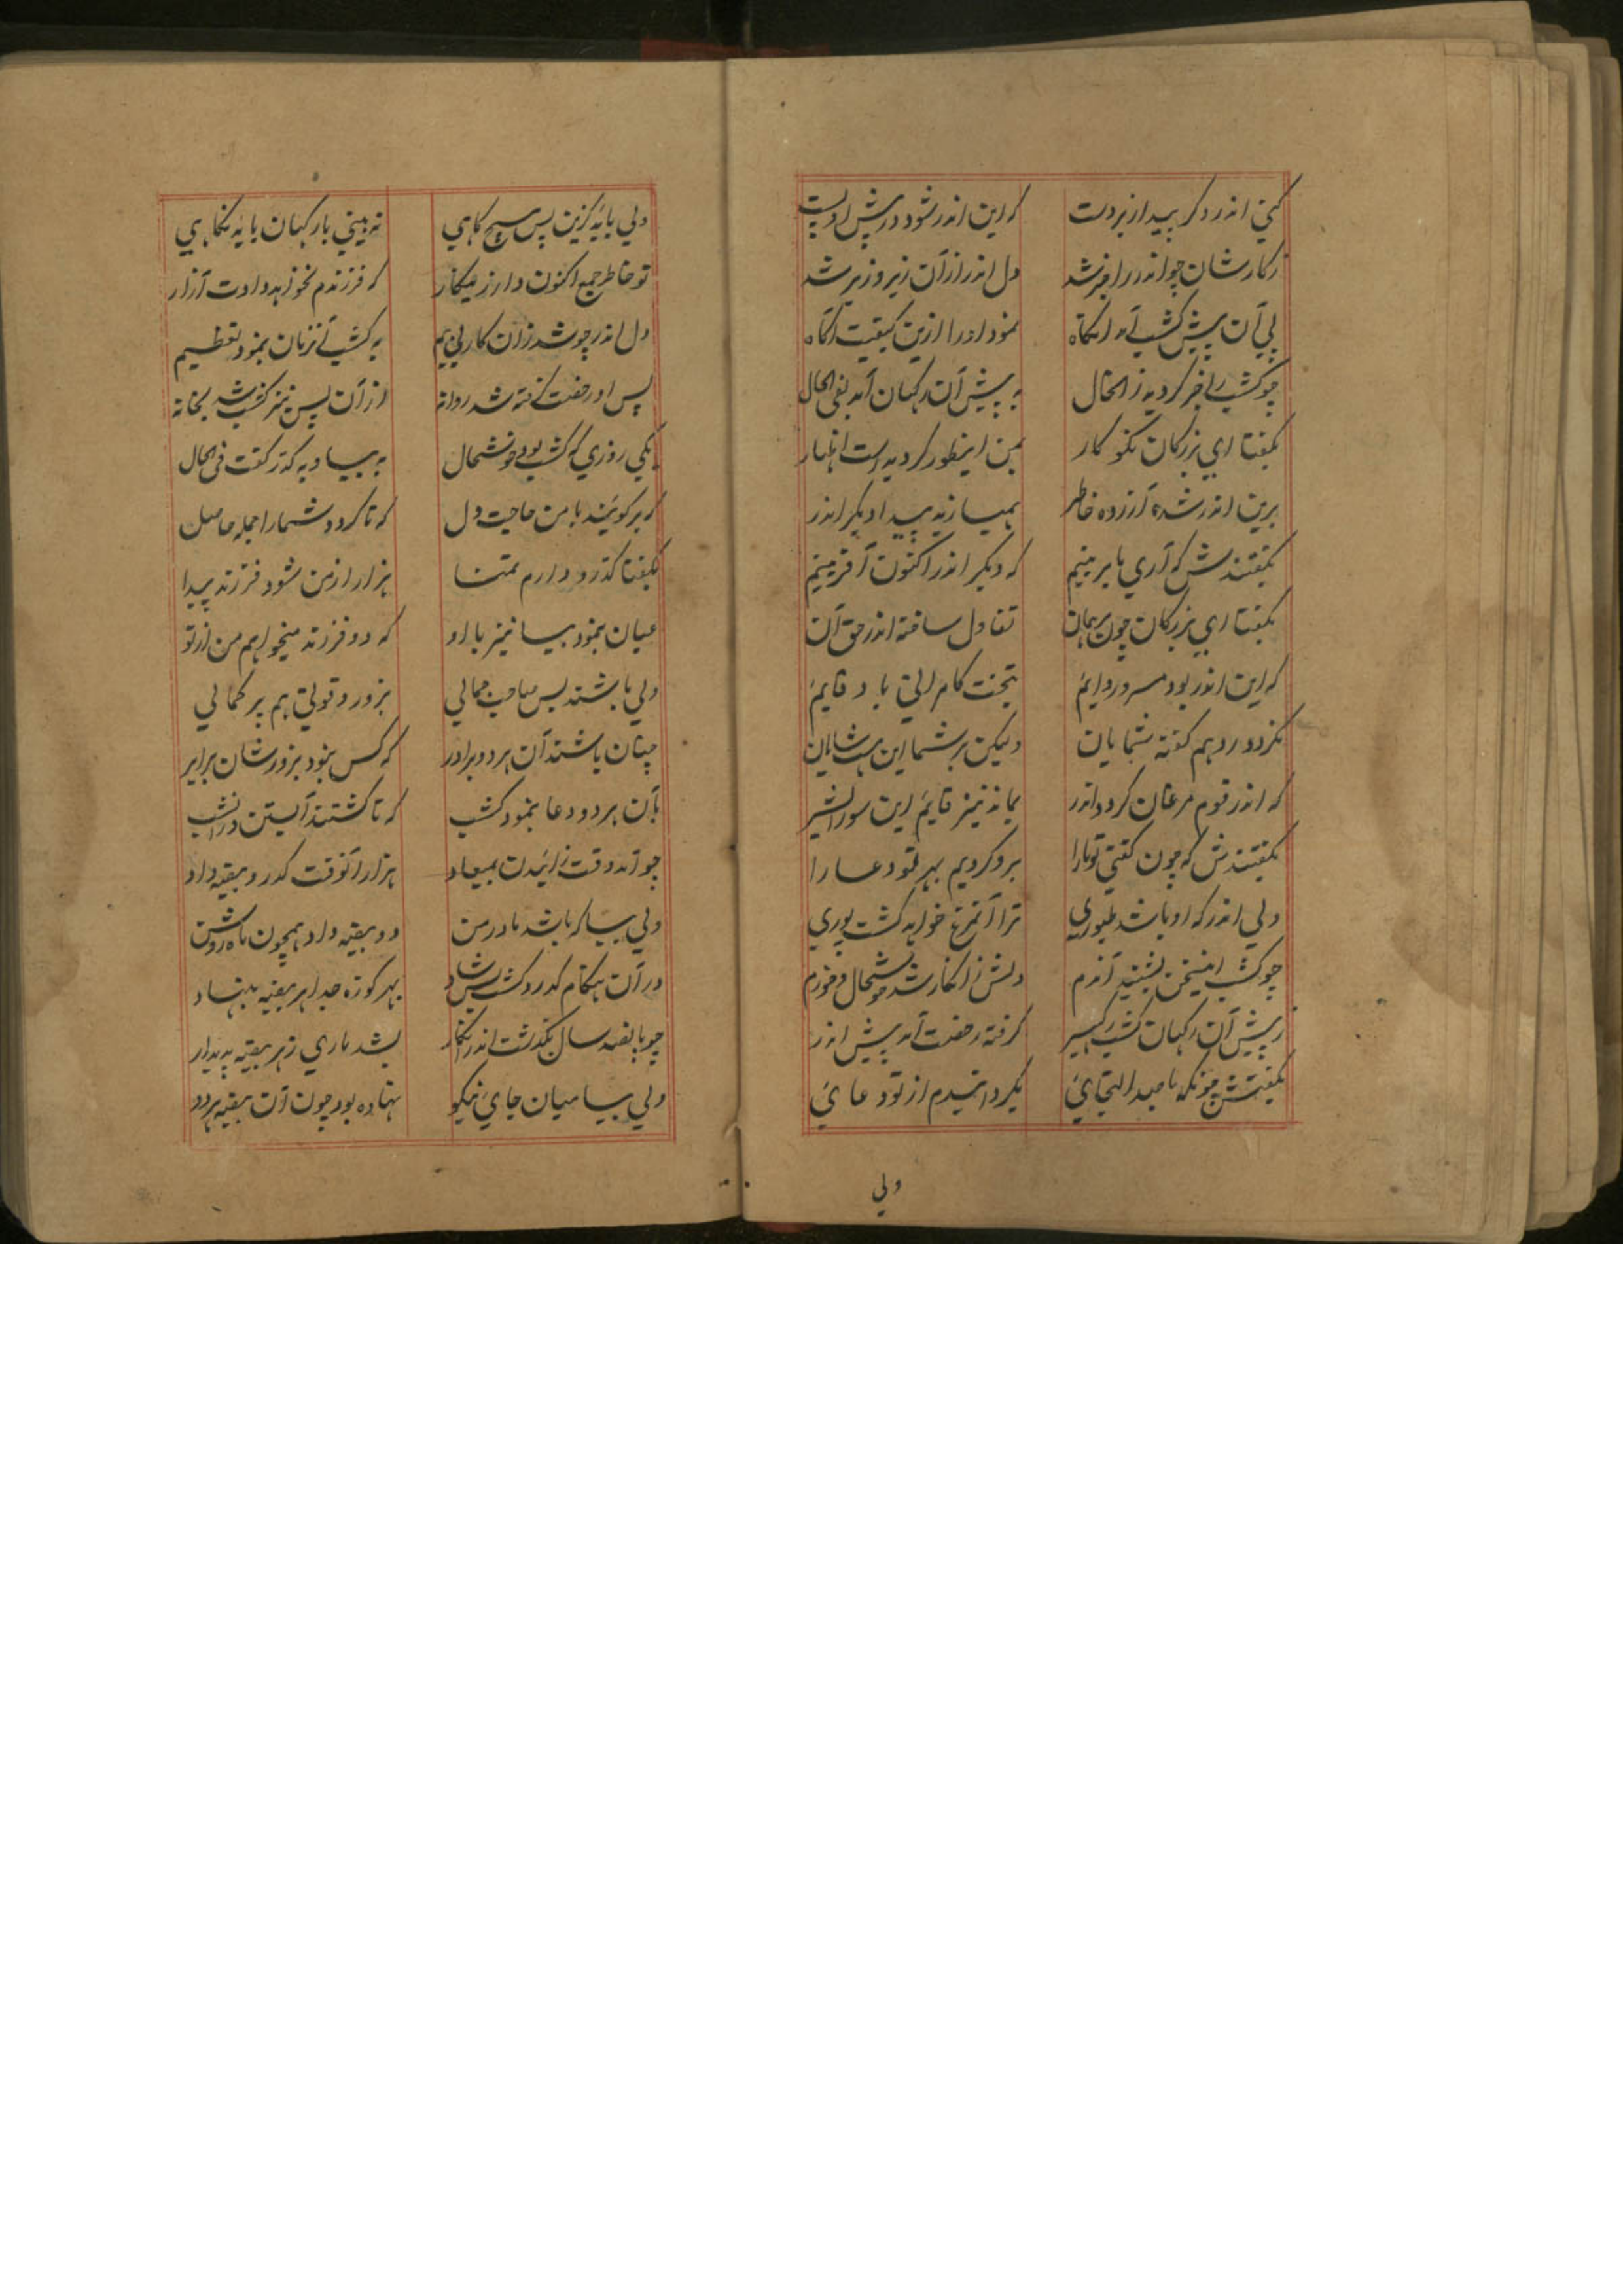 کنی اندر دگر پیدا ز بردست که این اندر شود در پیش او پست
ز کارشان چو اندر را خبر شد دل اندر از آن زیر و زبر شد
پی آن پیش کشپ آمد آنگاه نمود او را ازین کیفیت آگاه
چو کشپ را خبر گردید زان حال به پیش آن رکهان آمد بفی الحال
بگفتا ای بزرگان نکو کار بمن اینطور گردیده است اظهار
برین اندر شده آزرده خاطر همیسازید پیدا دیگر اندر
بگفتندش که آری ما برینیم که دیگر اندر اکنون آفرینیم
بگفتا ای بزرگان چون برهمان تفاول ساخته اندر حق آن
که این اندر بود مسرور دایم بتخت کامرانی باد قایم
نگردد رد هم گفته شمایان ولیکن بر شما این هست شایان
که اندر قوم مرغان گردد اندر بماند نیز قایم این سور اندر
بگفتندش که چون گفتی تو ما را برو کردیم بهر تو دعا را
ولی اندر که او باشد طیوری ترا آنهم خواهد گشت پوری
چو کشپ این سخن بشنید آندم دلش زان کار شد خوشحال و خورم
ز پیش آن رکهان کشپ گرفته رخصت آمد پیش اندر
بگفتش چونکه با صد التجائی بگردانیدم از تو دعائی
ولی
ولی باید کزین پس هیچ گاهی نه بینی بار کهان با یه نگاهی
تو خاطر جمع اکنون دار زینکار که فرزندم نخواهد دادت آزار
دل اندر چو شد زان کار بی بیم به کشپ آنزمان بنمود تعظیم
پس او رخصت گرفته شد روانه از آن پس نیز کشپ شد بخانه
یکی روزی که کشپ بود خوشحال به بیسا و به کدر گفت فی الحال
که برگوئید با من حاجت دل که تا گردد شما را جمله حاصل
بگفتا کدرو دارم تمنا هزار از من شود فرزند پیدا
عیان بنمود بیسا نیز با او که دو فرزند میخواهم من از تو
ولی باشند بس صاحب جمالی بزور و قوتی هم پر کمالی
چنان باشند آن هر دو برادر که کس نبود بزورشان برابر
بآن هر دو دعا بنمود کشپ که تا گشتند آبستن در آنشب
چو آمد وقت زائیدن بمیعاد هزار آنوقت کدرو بیضه داد
ولی بیسا که باشد مادر من دو بیضه داد همچون ماه روشن
در آن هنگام کدرو گشت بس شاد بهر کوزه جدا هر بیضه بنهاد
چو پانصد سال بگذشت اندر آنکار بشد ماری ز هر بیضه پدیدار
ولی بیسا میان جای نیکو نهاده بود چون آن بیضه هر دو